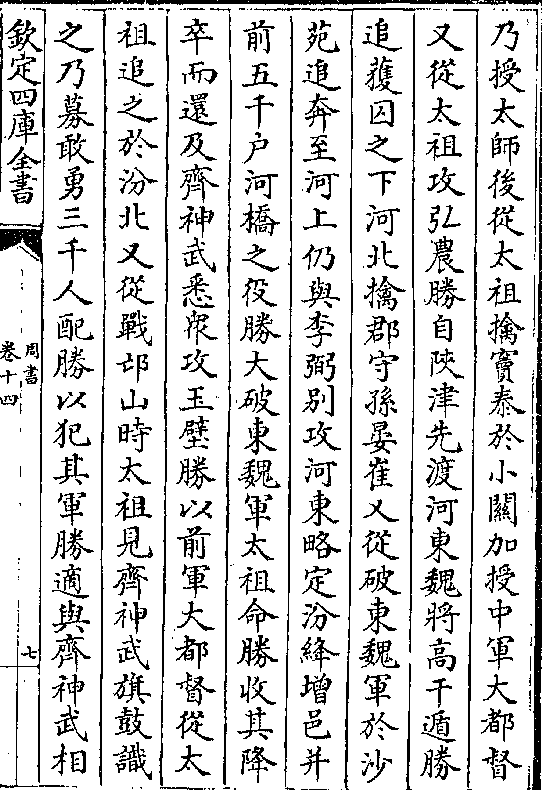 乃授太師後從太祖擒竇泰於小關加授中軍大都督
又從太祖攻弘農勝自陜津先渡河東魏將高干遁勝
追獲囚之下河北擒郡守孫晏崔乂從破東魏軍於沙
苑追奔至河上仍與李弼别攻河東略定汾絳增邑并
前五千户河橋之役勝大破東魏軍太祖命勝收其降
卒而還及齊神武悉衆攻玉壁勝以前軍大都督從太
祖追之於汾北又從戰邙山時太祖見齊神武旗鼓識
之乃募敢勇三千人配勝以犯其軍勝適與齊神武相
欽定四庫全書
周書
卷十四
七